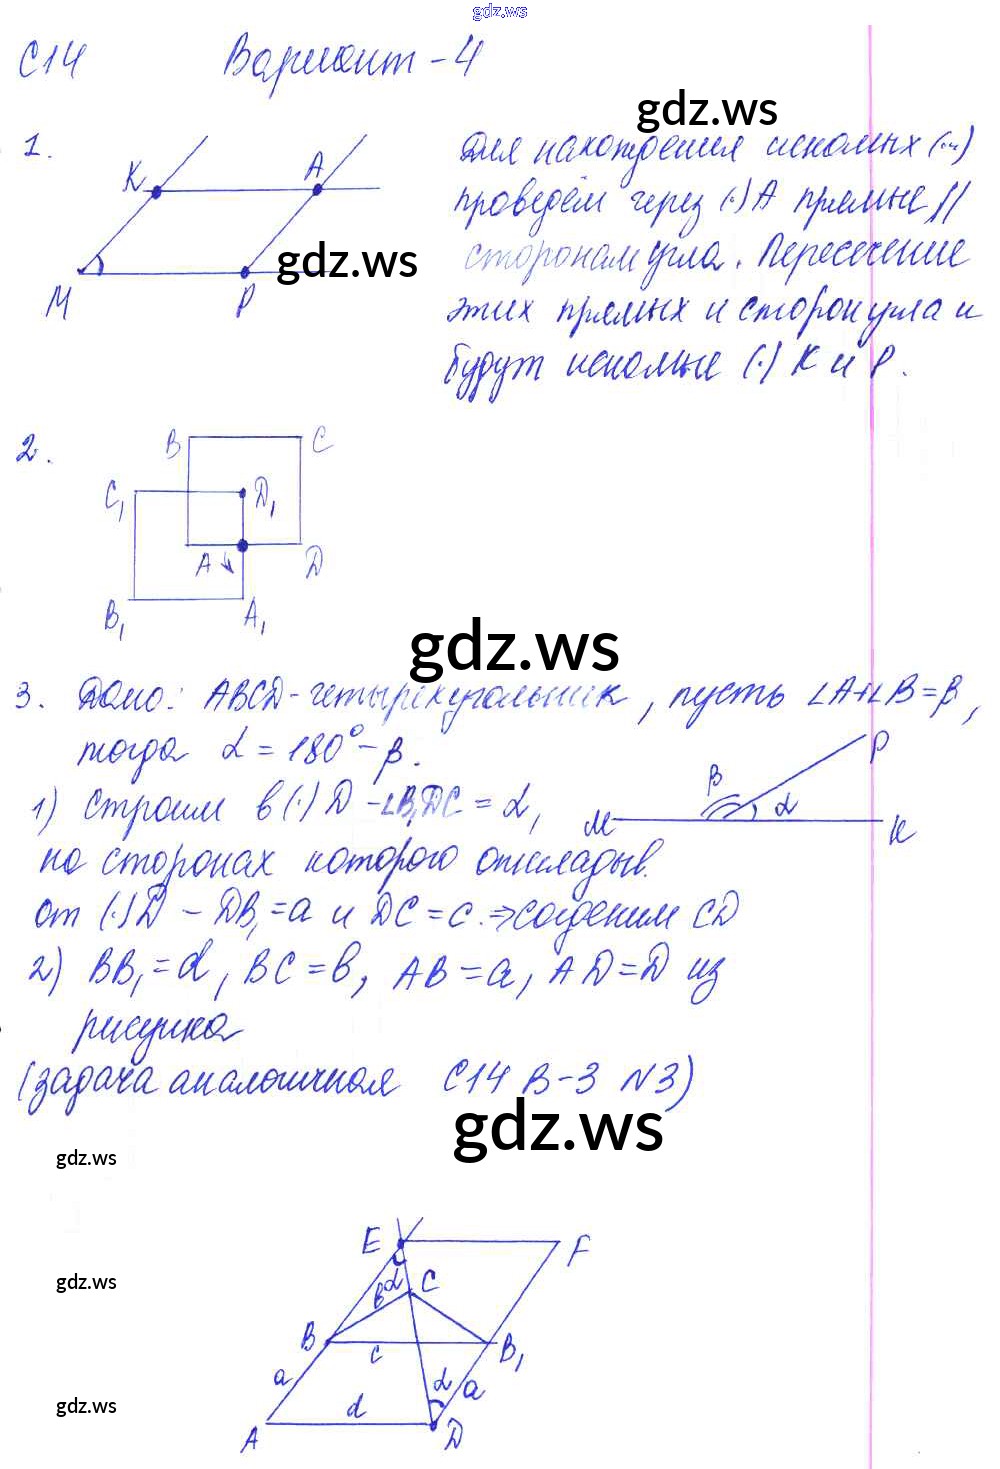 gdz.ws
С14 Вариант - 4
gdz.ws
1.
К А
М Р
gdz.ws
Для нахождения искомых (··)
проведём через (·) А прямые ||
сторонам угла. Пересечение
этих прямых и сторон угла и
будут искомые (·) К и Р.
2.
В С
С₁ D₁
А D
В₁ А₁
gdz.ws
3. Дано: ABCD - четырёхугольник, пусть ∠A+∠B=β,
тогда α = 180° - β.
β α
М Р К
1) Строим в (·) D - ∠B₁DC = α,
на сторонах которого откладыв.
от (·) D - DB₁ = a и DC = c. ⇒ соединим CD
2) BB₁ = d, BC = b, AB = a, AD = D из
рисунка
(задача аналогичная С14 В-3 N3)
gdz.ws
gdz.ws
E F
α C
b
gdz.ws
B c B₁
a α a
gdz.ws
d
A D